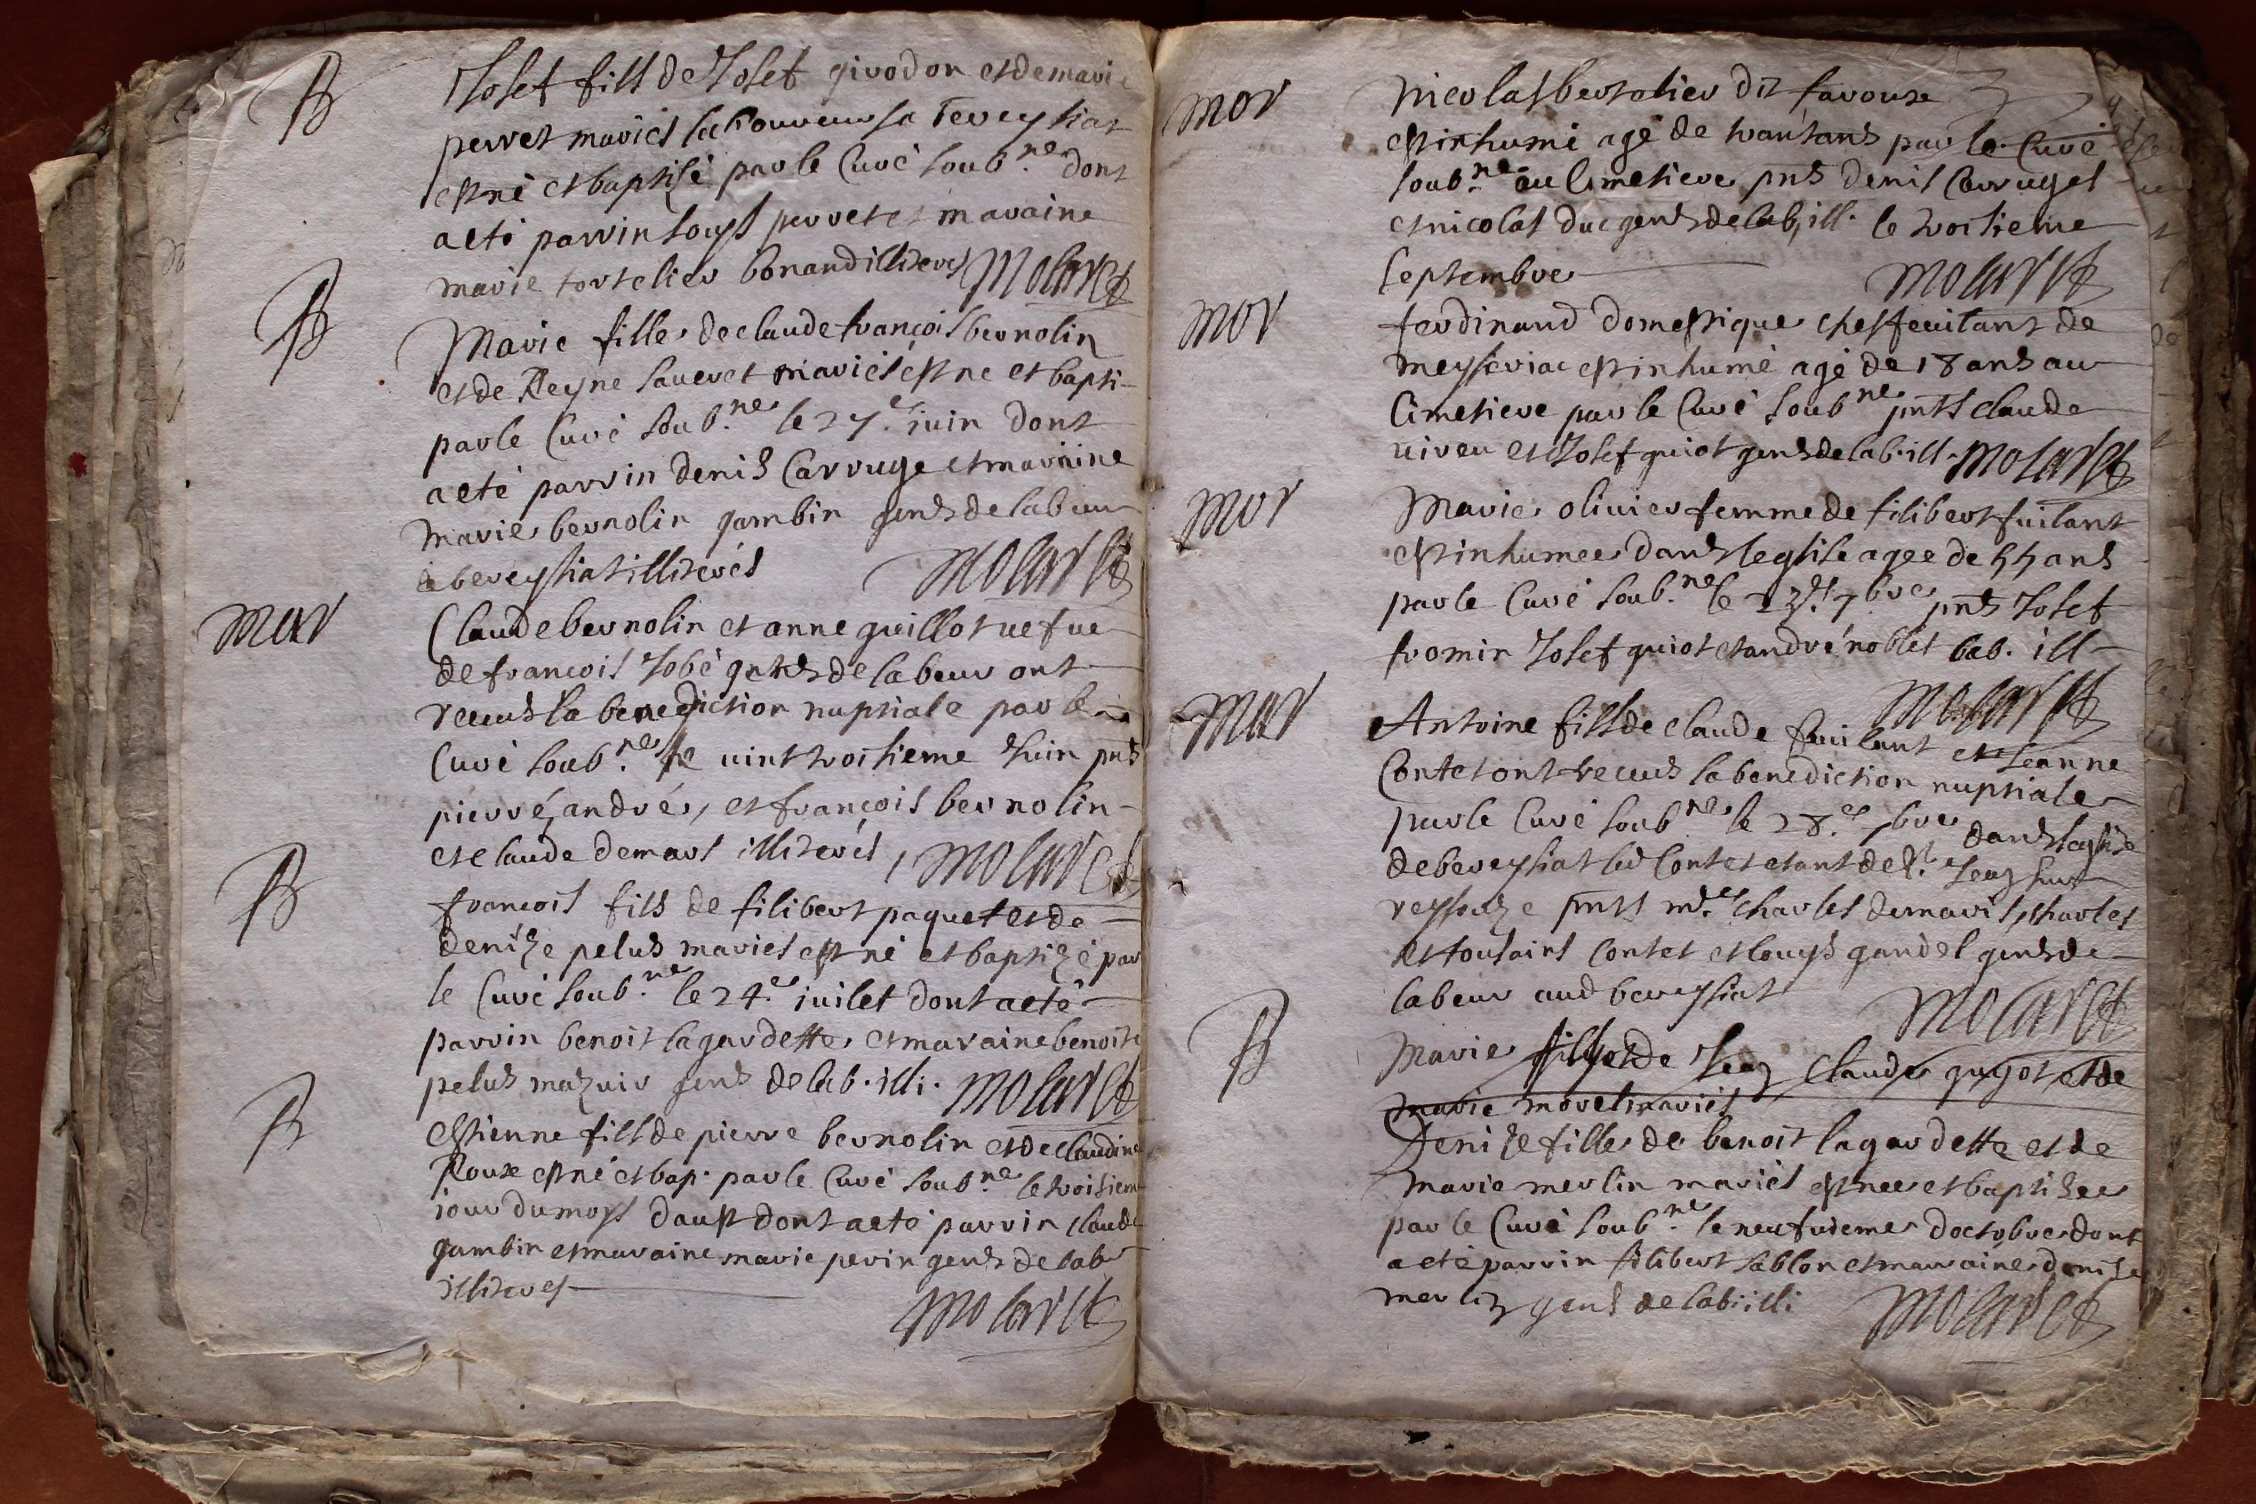 B
Josef fils de Josef givodon et de marie
perret mariés laboureurs a beveysiat
est né et baptizé par le Curé soub.ne dont
a eté parrin louys perret et maraine
marie tortelier bonand illiterés Molaret
B
Marie fille de claude françois bernolin
et de Reyne saveret mariés est ne et bapti-
par le Curé soub.ne le 27.e iuin dont
a eté parrin denis Carruge et maraine
marie bernolin gambin gens de labeur
a beveysiat illiterés Molaret
mar
Claude bernolin et anne guillot vefue
de françois Jobé gens de labeur ont
receus la benediction nuptiale par le
Curé soub.ne le vint troisieme Juin pnts
pierre, andré, et françois bernolin
et claude demars illiterés, Molaret
B
françois fils de filibert paquet et de
denize pelus mariés est né et baptizé par
le Curé soub.ne le 24.e iuilet dont a eté
parrin benoit lagardette et maraine benoite
pelus mazuir gens de lab. illi. Molaret
B
Estienne fils de pierre bernolin et de claudine
Roux est né et bap. par le Curé soub.ne le troisieme
iour du moys daust dont a eté parrin claude
gambin et maraine marie perin gens de lab
illiteres Molaret
mor
Nicolas bertelier dit
est inhumé agé de par le Curé
soub.ne au Cimetiere pnts denis Carruges
et nicolas duc gens de lab, ill. le troisieme
septembre Molaret
mor
ferdinand domestique ches feuilant de
meyseriac est inhumé agé de 18 ans au
Cimetiere par le Curé soub.ne pnts claude
viveu et Josef guiot gens de lab. ill. Molaret
mor
Marie olivier femme de filibert fuilant
est inhumee dans leglise agee de 55 ans
par le Curé soub.ne le 23.e 7bre pnts Josef
fromin Josef guiot et andré noblet lab. ill
Molaret
mar
Antoine fils de claude fuilant et Jeanne
Contet ont receus la benediction nuptiale
par le Curé soub.ne le 28.e 7bre dans leglise
de beveysiat led Contet etant de st. Jean sur
reyssouze pnts m.e charles demaris, charles
et tousains Contet et louys gandel gens de
labeur aud beveysiat Molaret
B
Marie fille de Jean Claude guyot et de
marie morel mariés
Denize fille de benoit lagardette et de
marie merlin mariés est nee et baptizee
par le Curé soub.ne le neufvieme doctobre dont
a eté parrin filibert sablon et maraine denize
merlin gens de lab illi Molaret